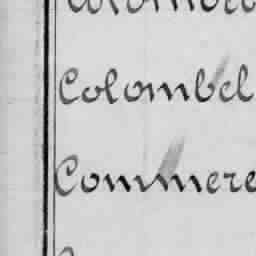 Colombel
Commere